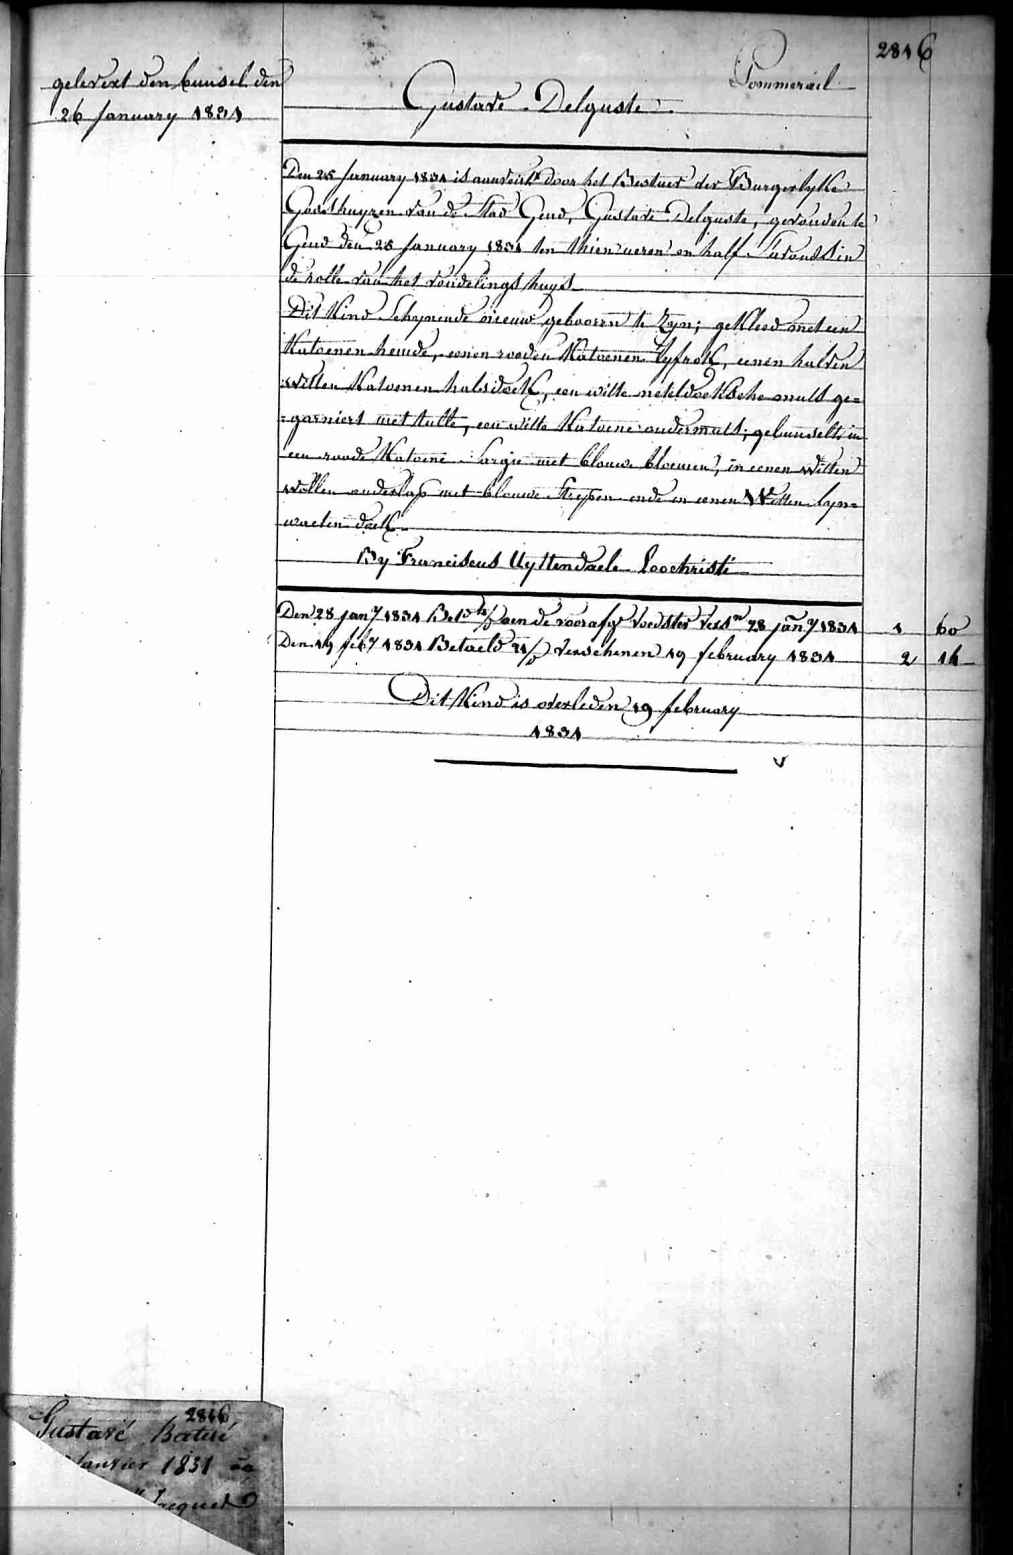 2816
gelevert den bunsel den
26 January 1831
Pommerail
Gustave Delguste
Den 25 January 1831 is aanveirt door het Bestuer der Burgerlyke
Godshuyzen van de Stad Gend, Gustave Delguste, gevonden te
Gend den 25 January 1831 ten thien ueren en half s'avonds in
de rolle van het vondelingshuys
Dit Kind schynende nieuw gebooren te zyn; gekleed met een
Katoenen hemde, eenen rooden Katoenen lyfrok, eenen halven
witten Katoenen halsdoek, een witte neteldoeksche muts ge=
=garniert met tulle, een witte Katoene ondermuts; gebunselt in
een roode Katoene sargie met blauwe bloemen, in eenen witten
wollen onderlap met blauwe strepen ende in eenen Witten lyn=
waeten doek
By Franciscus Uyttendaele Loochristi
Den 28 jany 1831 Bet aen de voorafge voedster versn 28 jany 1831 1 60
Den 19 feby 1831 Betaeld 21/ verschenen 19 february 1831 2 16
Dit Kind is overleden 19 february
1831
2816
Gustave
Janvier 1831
Jacquet